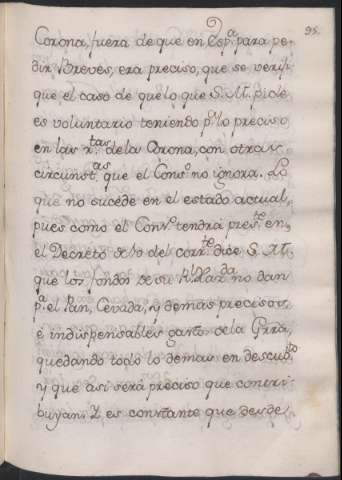 95.
Corona, fuera de que en Esp.ª para pe-
dir Breves, era preciso, que se verifi-
que el caso de que lo que S. M. pide
es voluntario teniendo p.ª lo preciso
en las r.tas de la Corona, con otras
circunst.as que el Cons.o no ignora. Lo
que no sucede en el estado actual,
pues como el Cons.o tendrá pres.te en
el Decreto de 10 del corr.te dice S. M.
que los fondos de su R.l Haz.da no dan
p.ª el Pan, Cevada, y demas precisos,
é indispensables gast.s dela Grrã,
quedando todo lo demas en descub.to
y que asi será preciso que contri-
buyan. Y es constante que desde